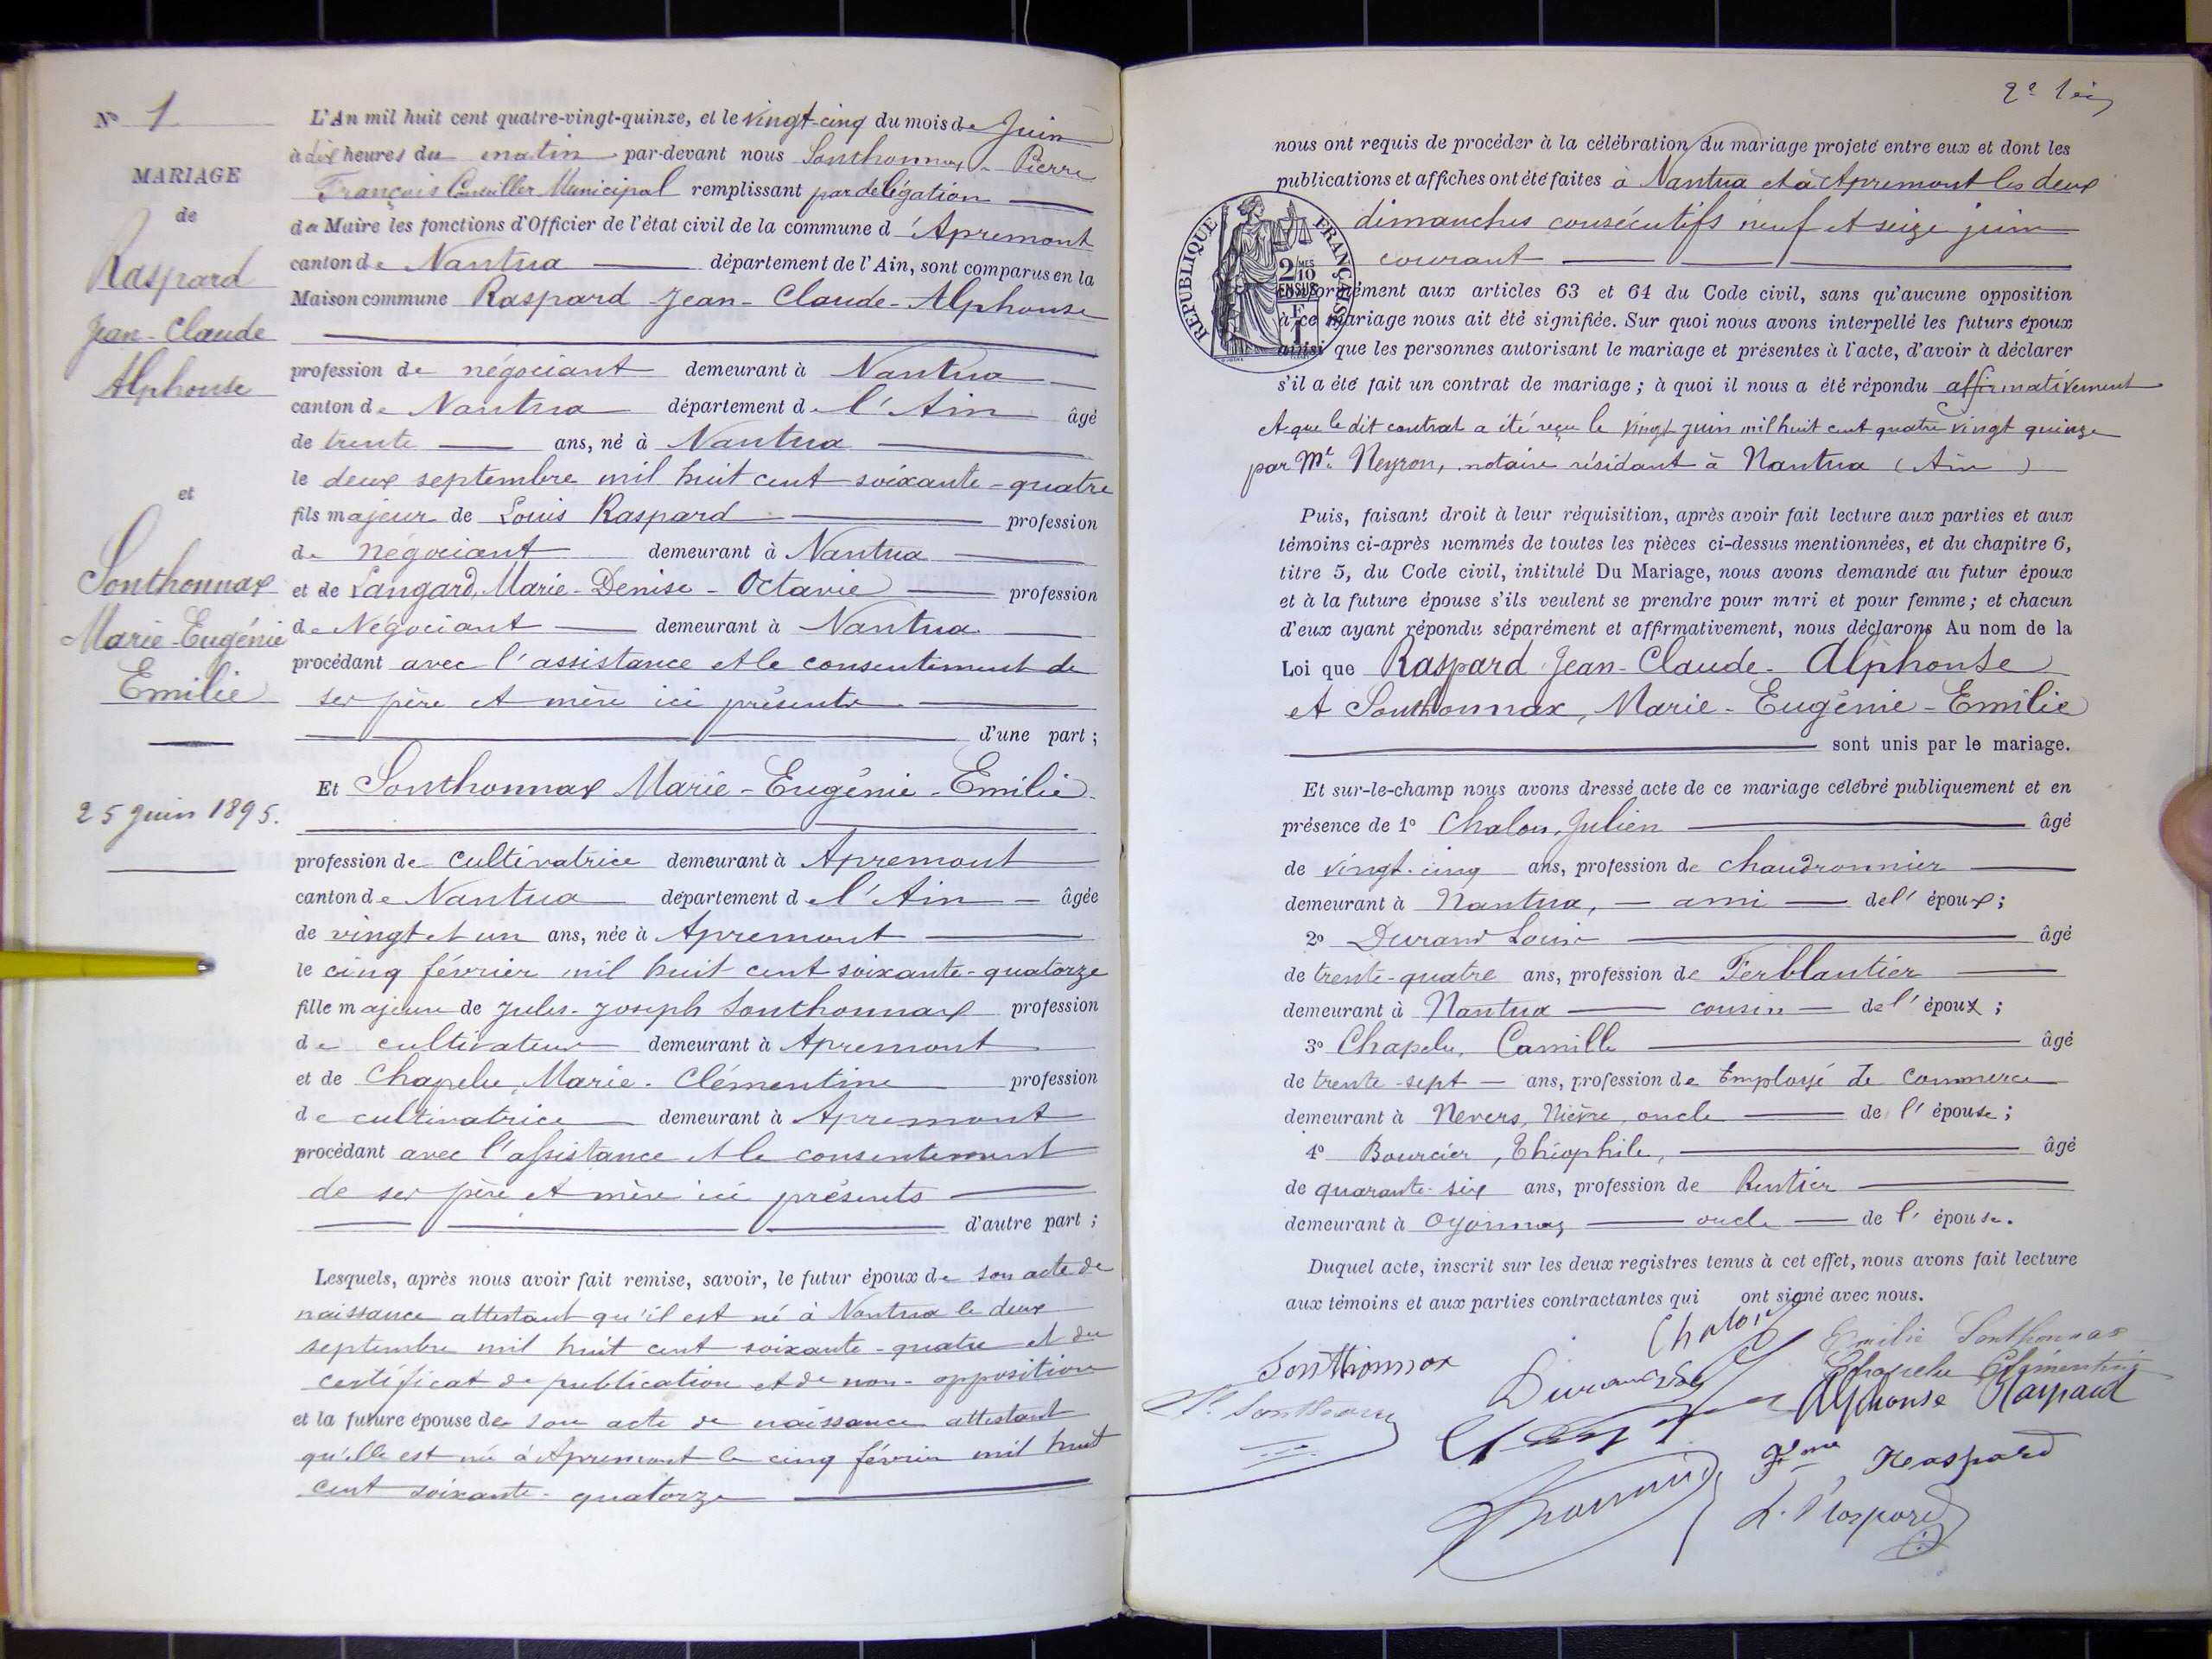 N° 1
MARIAGE
de
Raspard
Jean-Claude
Alphonse
et
Sonthonnax
Marie-Eugénie
Emilie
25 Juin 1895.
L'An mil huit cent quatre-vingt-quinze, et le vingt-cinq du mois de Juin
à dix heures du matin par-devant nous Sonthonnax - Pierre
François Conseiller Municipal remplissant par délégation
du Maire les fonctions d'Officier de l'état civil de la commune d'Apremont
canton de Nantua département de l'Ain, sont comparus en la
Maison commune Raspard Jean-Claude-Alphonse
profession de négociant demeurant à Nantua
canton de Nantua département de l'Ain âgé
de trente ans, né à Nantua
le deux septembre mil huit cent soixante-quatre
fils majeur de Louis Raspard profession
de négociant demeurant à Nantua
et de Langard, Marie-Denise-Octavie profession
de Négociant demeurant à Nantua
procédant avec l'assistance et le consentement de
ses père et mère ici présents
d'une part ;
Et Sonthonnax Marie-Eugénie-Emilie
profession de cultivatrice demeurant à Apremont
canton de Nantua département de l'Ain âgée
de vingt et un ans, née à Apremont
le cinq février mil huit cent soixante-quatorze
fille majeure de Jules-Joseph Sonthonnax profession
de cultivateur demeurant à Apremont
et de Chapelu, Marie-Clémentine profession
de cultivatrice demeurant à Apremont
procédant avec l'assistance et le consentement
de ses père et mère ici présents
d'autre part ;
Lesquels, après nous avoir fait remise, savoir, le futur époux de son acte de
naissance attestant qu'il est né à Nantua le deux
septembre mil huit cent soixante-quatre et du
certificat de publication et de non-opposition
et la future épouse de son acte de naissance attestant
qu'elle est née à Apremont le cinq février mil huit
cent soixante-quatorze
nous ont requis de procéder à la célébration du mariage projeté entre eux et dont les
publications et affiches ont été faites à Nantua et à Apremont les deux
dimanches consécutifs neuf et seize juin
courant
RÉPUBLIQUE FRANÇAISE
conformément aux articles 63 et 64 du Code civil, sans qu'aucune opposition
à ce mariage nous ait été signifiée. Sur quoi nous avons interpellé les futurs époux
ainsi que les personnes autorisant le mariage et présentes à l'acte, d'avoir à déclarer
s'il a été fait un contrat de mariage ; à quoi il nous a été répondu affirmativement
et que le dit contrat a été reçu le vingt juin mil huit cent quatre vingt quinze
par Mt. Neyron, notaire résidant à Nantua (Ain)
Puis, faisant droit à leur réquisition, après avoir fait lecture aux parties et aux
témoins ci-après nommés de toutes les pièces ci-dessus mentionnées, et du chapitre 6,
titre 5, du Code civil, intitulé Du Mariage, nous avons demandé au futur époux
et à la future épouse s'ils veulent se prendre pour mari et pour femme ; et chacun
d'eux ayant répondu séparément et affirmativement, nous déclarons Au nom de la
Loi que Raspard Jean-Claude-Alphonse
et Sonthonnax, Marie-Eugénie-Emilie
sont unis par le mariage.
Et sur-le-champ nous avons dressé acte de ce mariage célébré publiquement et en
présence de 1° Chalon, Julien âgé
de vingt-cinq ans, profession de chaudronnier
demeurant à Nantua, ami de l'époux ;
2° Durand Louis âgé
de trente-quatre ans, profession de Ferblantier
demeurant à Nantua cousin de l'époux ;
3° Chapelu, Camille âgé
de trente-sept ans, profession de Employé de commerce
demeurant à Nevers, Nièvre, oncle de l'épouse ;
4° Bourcier, Théophile, âgé
de quarante-six ans, profession de Rentier
demeurant à Oyonnax oncle de l'épouse.
Duquel acte, inscrit sur les deux registres tenus à cet effet, nous avons fait lecture
aux témoins et aux parties contractantes qui ont signé avec nous.
Chalon
Emilie Sonthonnax
Sonthonnax
Chapelu Clémentine
Durand
Alphonse Raspard
Raspard
L. Raspard